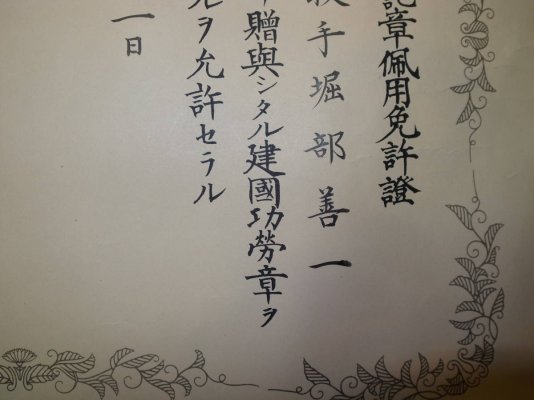 記章佩用免許證
手堀部善一
贈與シタル建國功勞章ヲ
ヲ允許セラル
一日